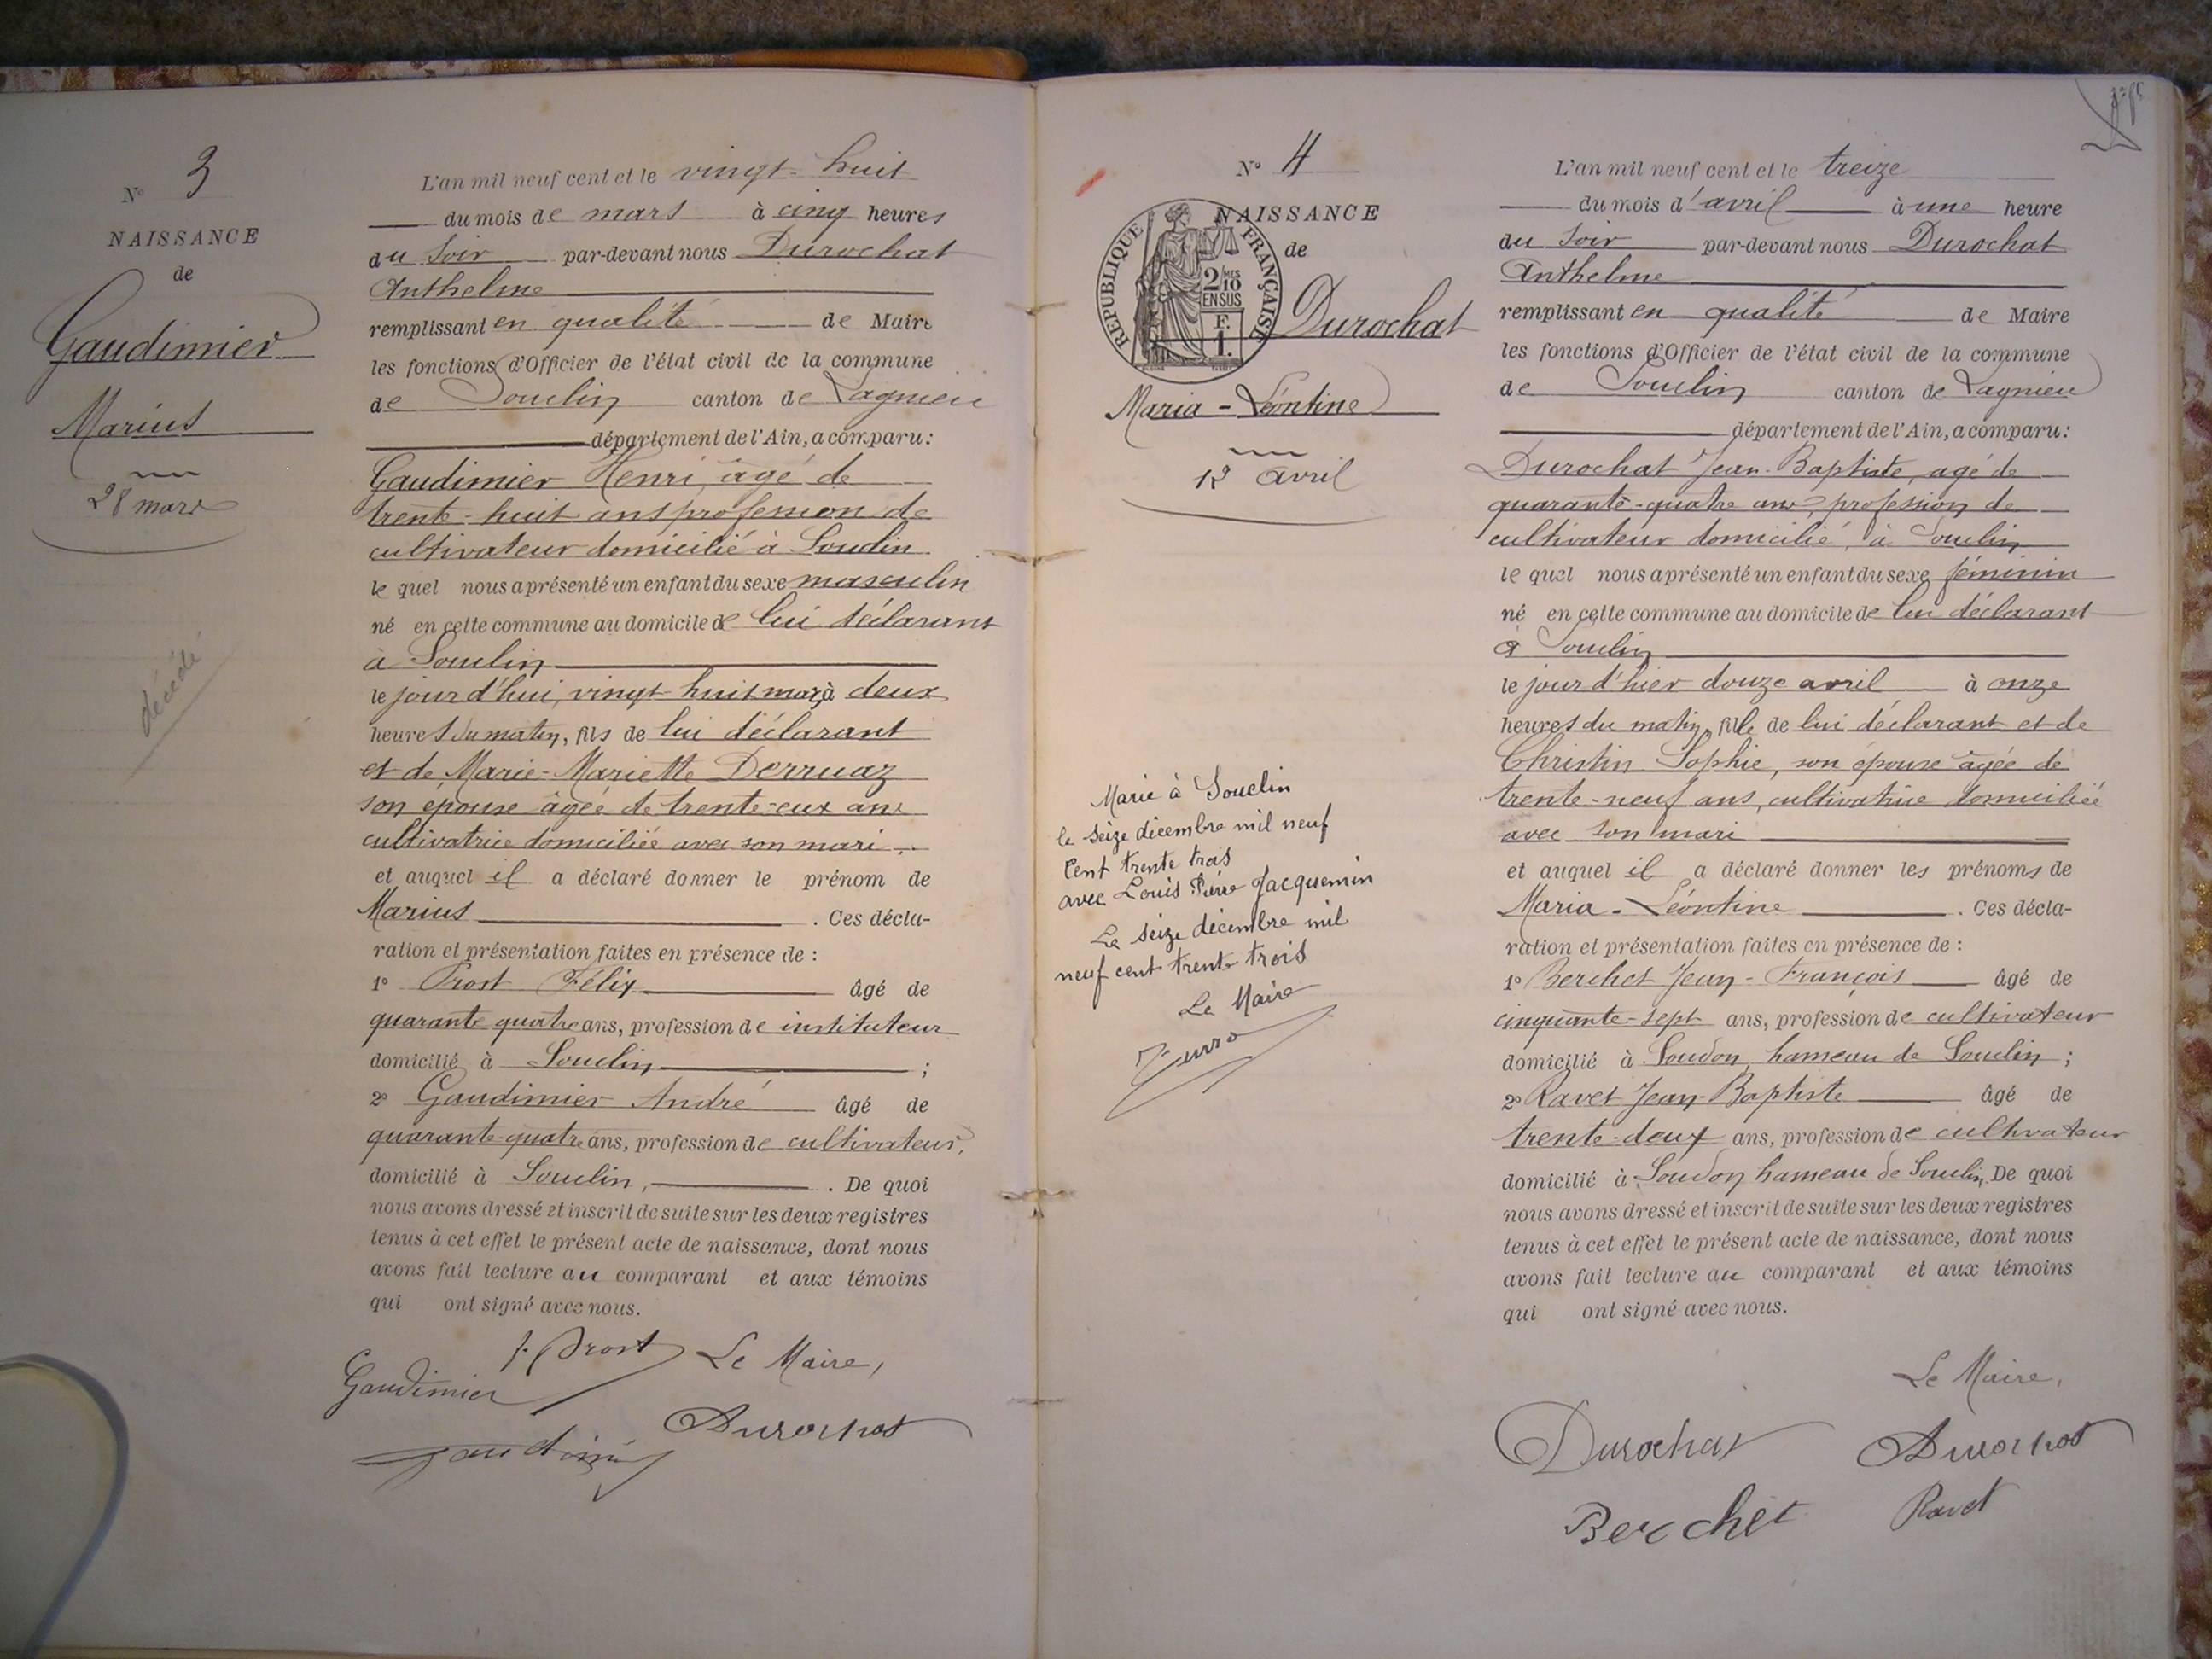 N° 3
NAISSANCE
de
Gaudimier
Marius
28 mars
décédé
L'an mil neuf cent et le vingt-huit
du mois de mars à cinq heures
du soir par-devant nous Durochat
Anthelme
remplissant en qualité de Maire
les fonctions d'Officier de l'état civil de la commune
de Souclin canton de Lagnieu
département de l'Ain, a comparu :
Gaudimier Henri, âgé de
trente-huit ans profession de
cultivateur domicilié à Souclin
le quel nous a présenté un enfant du sexe masculin
né en cette commune au domicile de lui déclarant
à Souclin
le jour d'hui, vingt-huit mars à deux
heures du matin, fils de lui déclarant
et de Marie-Mariette Derruaz
son épouse âgée de trente-eux ans
cultivatrice domiciliée avec son mari
et auquel il a déclaré donner le prénom de
Marius . Ces décla-
ration et présentation faites en présence de :
1° Prost Félix âgé de
quarante quatre ans, profession de instituteur
domicilié à Souclin ;
2° Gaudimier André âgé de
quarante-quatre ans, profession de cultivateur,
domicilié à Souclin, . De quoi
nous avons dressé et inscrit de suite sur les deux registres
tenus à cet effet le présent acte de naissance, dont nous
avons fait lecture au comparant et aux témoins
qui ont signé avec nous.
f. Prost Le Maire,
Gaudimier
Durochat
Gaudimier
N° 4
NAISSANCE
de
RÉPUBLIQUE FRANÇAISE
2/10 MES
EN SUS
F.
1.
Durochat
Maria-Léontine
12 avril
Marié à Souclin
le seize décembre mil neuf
cent trente trois
avec Louis Pierre Jacquemin
Le seize décembre mil
neuf cent trente trois
Le Maire
L'an mil neuf cent et le treize
du mois d'avril à une heure
du soir par-devant nous Durochat
Anthelme
remplissant en qualité de Maire
les fonctions d'Officier de l'état civil de la commune
de Souclin canton de Lagnieu
département de l'Ain, a comparu :
Durochat Jean-Baptiste, agé de
quarante-quatre ans, profession de
cultivateur domicilié à Souclin
le quel nous a présenté un enfant du sexe féminin
né en cette commune au domicile de lui déclarant
à Souclin
le jour d'hier douze avril à onze
heures du matin, fille de lui déclarant et de
Christin Sophie, son épouse âgée de
trente-neuf ans, cultivatrice domiciliée
avec son mari
et auquel il a déclaré donner les prénoms de
Maria-Léontine . Ces décla-
ration et présentation faites en présence de :
1° Berchet Jean-François âgé de
cinquante-sept ans, profession de cultivateur
domicilié à Soudon, hameau de Souclin ;
2° Ravet Jean-Baptiste âgé de
trente-deux ans, profession de cultivateur
domicilié à Soudon hameau de Souclin. De quoi
nous avons dressé et inscrit de suite sur les deux registres
tenus à cet effet le présent acte de naissance, dont nous
avons fait lecture au comparant et aux témoins
qui ont signé avec nous.
Le Maire,
Durochat Durochat
Berchet Ravet